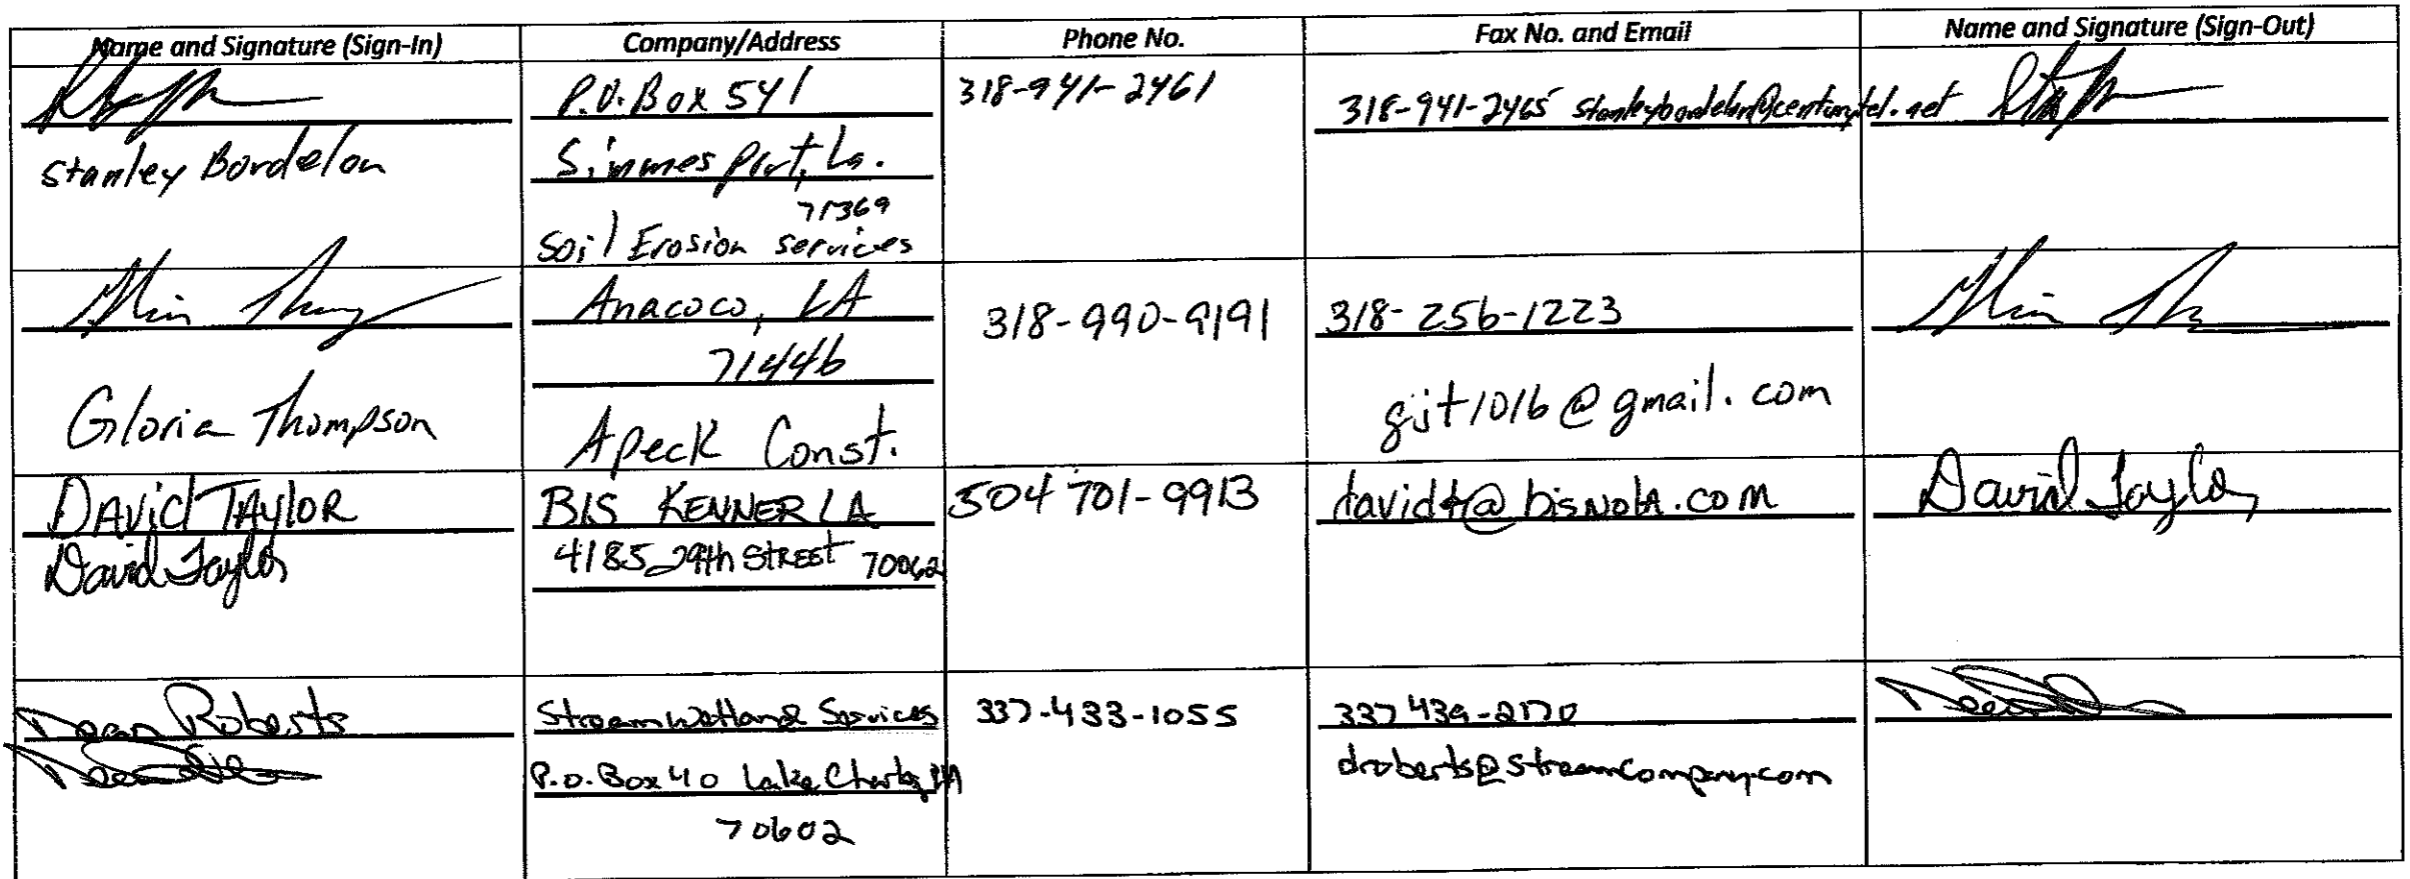 Name and Signature (Sign-In)
Company/Address
Phone No.
Fax No. and Email
Name and Signature (Sign-Out)
Stanley Bordelon
P.O. Box 541
Simmesport, La.
71369
Soil Erosion Services
318-941-2461
318-941-2465 stanleybordelon@centurytel.net
Gloria Thompson
Anacoco, LA
71446
Apeck Const.
318-990-9191
318-256-1223
gjt1016@gmail.com
DAVID TAYLOR
David Taylor
BIS KENNER LA
4185 29th STREET 70062
504 701-9913
davidt@bisNola.com
David Taylor
Dean Roberts
Stream Wetland Services
P.O. Box 40 Lake Charles, LA
70602
337-433-1055
337 439-2170
droberts@streamcompany.com